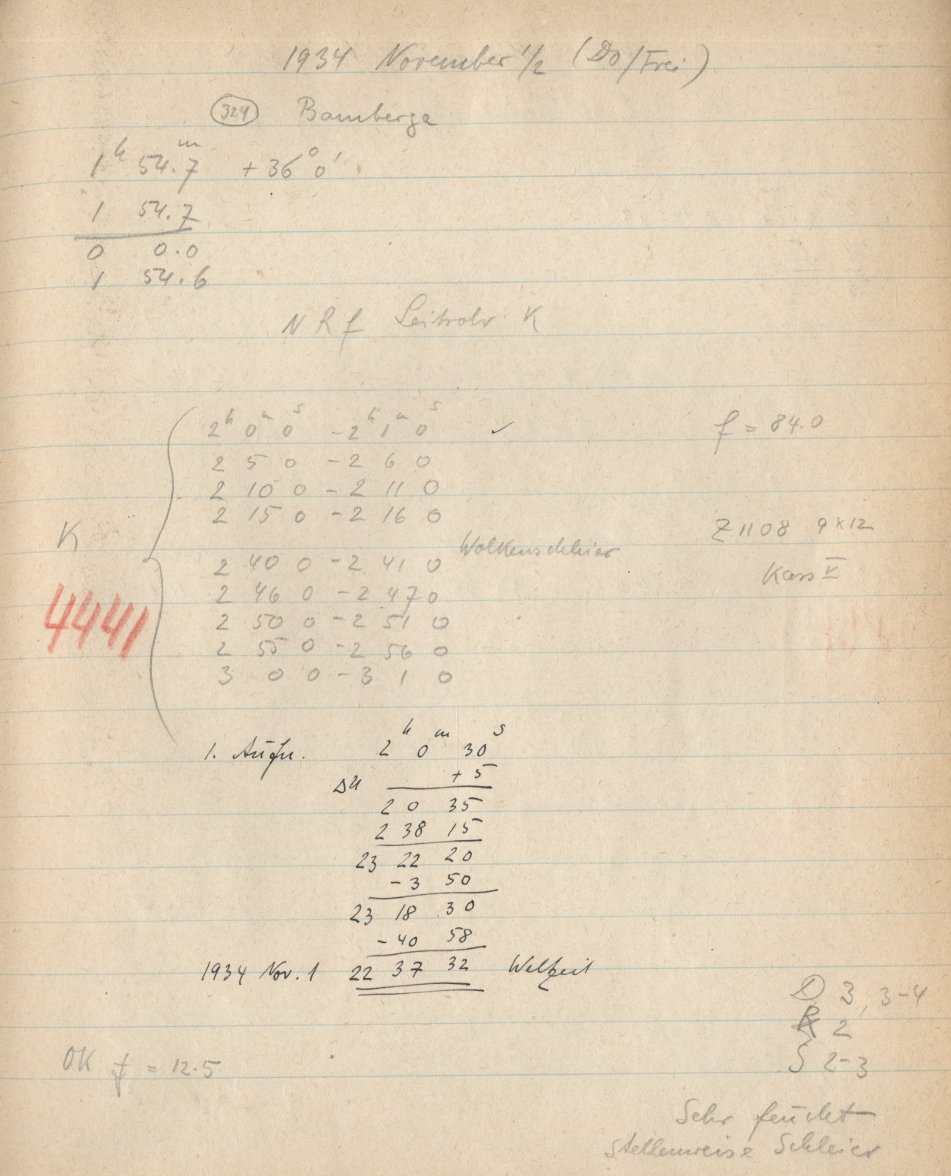 1934 November 1/2 (Do/Frei)
324 Bamberga
1h 54.m7 +36° 0'
1 54.7
0 0.0
1 54.6
N R f Leitrohr K
2h 0m 0s - 2h 1m 0s ✓ f = 84.0
2 5 0 - 2 6 0
2 10 0 - 2 11 0
2 15 0 - 2 16 0
K Wolkenschleier Z 1108 9x12
2 40 0 - 2 41 0 Kass V
2 46 0 - 2 47 0
4441 2 50 0 - 2 51 0
2 55 0 - 2 56 0
3 0 0 - 3 1 0
1. Aufn. 2h 0m 30s
ΔU + 5
2 0 35
2 38 15
23 22 20
- 3 50
23 18 30
- 40 58
1934 Nov. 1 22 37 32 Weltzeit
D 3, 3-4
R 2
S 2-3
OK f = 12.5
Sehr feucht
stellenweise Schleier